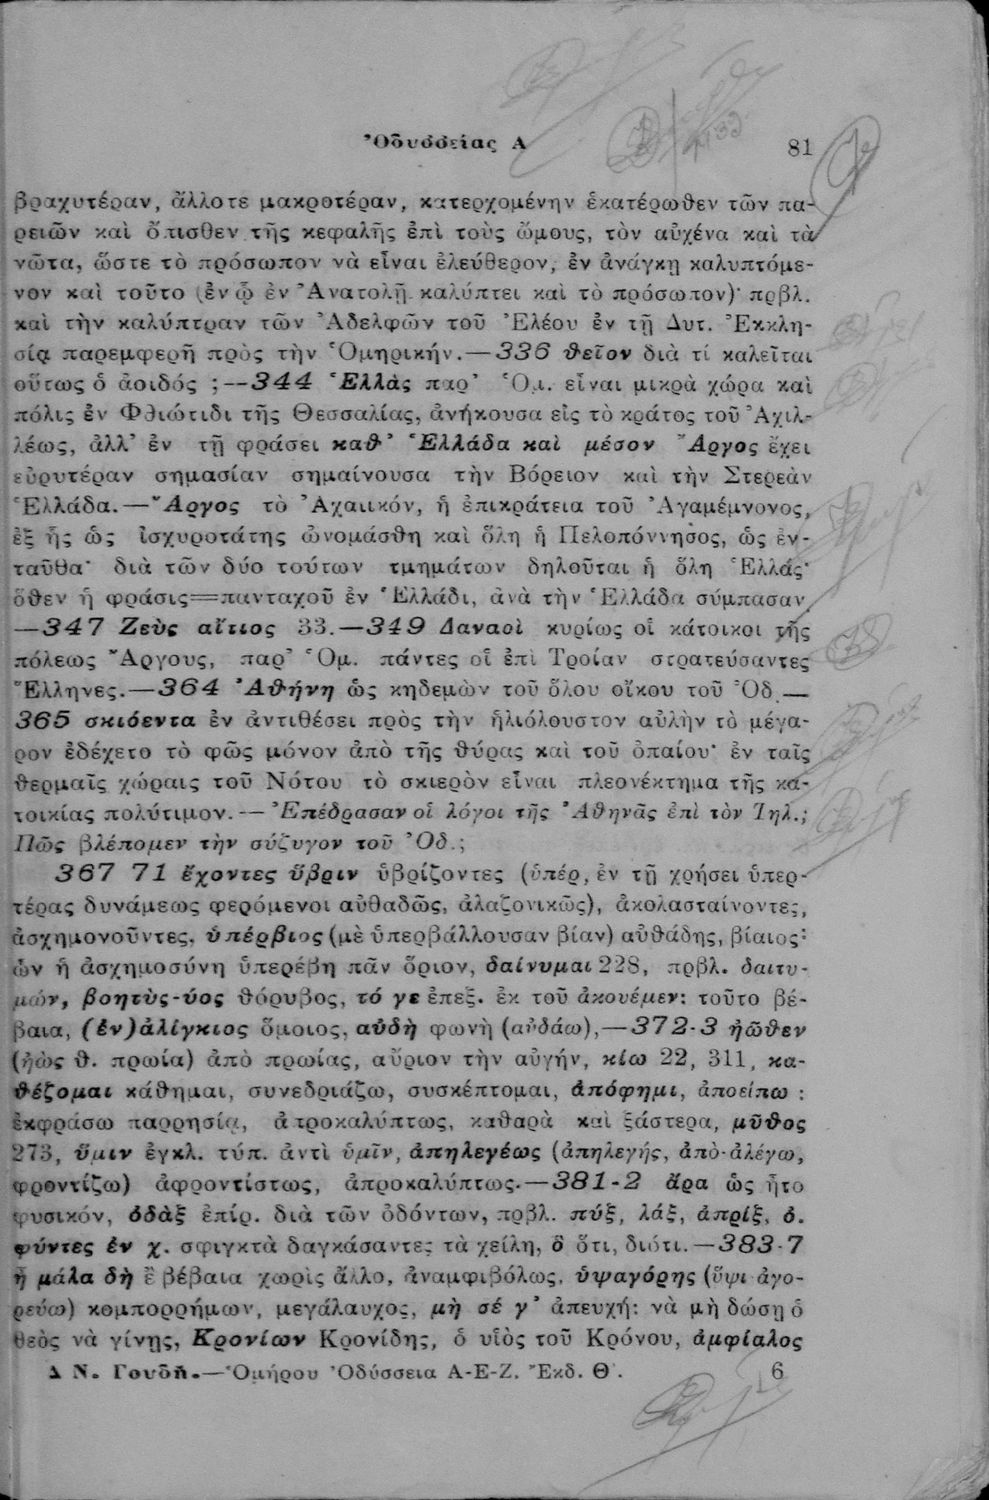 Ὀδυσσείας Α 81
βραχυτέραν, ἄλλοτε μακροτέραν, κατερχομένην ἑκατέρωθεν τῶν πα-
ρειῶν καὶ ὄπισθεν τῆς κεφαλῆς ἐπὶ τοὺς ὤμους, τὸν αὐχένα καὶ τὰ
νῶτα, ὥστε τὸ πρόσωπον νὰ εἶναι ἐλεύθερον, ἐν ἀνάγκῃ καλυπτόμε-
νον καὶ τοῦτο (ἐν ᾧ ἐν Ἀνατολῇ καλύπτει καὶ τὸ πρόσωπον)· πρβλ.
καὶ τὴν καλύπτραν τῶν Ἀδελφῶν τοῦ Ἐλέου ἐν τῇ Δυτ. Ἐκκλη-
σίᾳ παρεμφερῆ πρὸς τὴν Ὁμηρικήν.—336 θεῖον διὰ τί καλεῖται
οὕτως ὁ ἀοιδός ;—344 Ἑλλὰς παρ’ Ὁμ. εἶναι μικρὰ χώρα καὶ
πόλις ἐν Φθιώτιδι τῆς Θεσσαλίας, ἀνήκουσα εἰς τὸ κράτος τοῦ Ἀχιλ-
λέως, ἀλλ’ ἐν τῇ φράσει καθ’ Ἑλλάδα καὶ μέσον Ἄργος ἔχει
εὐρυτέραν σημασίαν σημαίνουσα τὴν Βόρειον καὶ τὴν Στερεὰν
Ἑλλάδα.—Ἄργος τὸ Ἀχαιικόν, ἡ ἐπικράτεια τοῦ Ἀγαμέμνονος,
ἐξ ἧς ὡς ἰσχυροτάτης ὠνομάσθη καὶ ὅλη ἡ Πελοπόννησος, ὡς ἐν-
ταῦθα· διὰ τῶν δύο τούτων τμημάτων δηλοῦται ἡ ὅλη Ἑλλάς·
ὅθεν ἡ φράσις=πανταχοῦ ἐν Ἑλλάδι, ἀνὰ τὴν Ἑλλάδα σύμπασαν.
—347 Ζεὺς αἴτιος 33.—349 Δαναοὶ κυρίως οἱ κάτοικοι τῆς
πόλεως Ἄργους, παρ’ Ὁμ. πάντες οἱ ἐπὶ Τροίαν στρατεύσαντες
Ἕλληνες.—364 Ἀθήνη ὡς κηδεμὼν τοῦ ὅλου οἴκου τοῦ Ὀδ —
365 σκιόεντα ἐν ἀντιθέσει πρὸς τὴν ἡλιόλουστον αὐλὴν τὸ μέγα-
ρον ἐδέχετο τὸ φῶς μόνον ἀπὸ τῆς θύρας καὶ τοῦ ὀπαίου· ἐν ταῖς
θερμαῖς χώραις τοῦ Νότου τὸ σκιερὸν εἶναι πλεονέκτημα τῆς κα-
τοικίας πολύτιμον.—Ἐπέδρασαν οἱ λόγοι τῆς Ἀθηνᾶς ἐπὶ τὸν Τηλ.;
Πῶς βλέπομεν τὴν σύζυγον τοῦ Ὀδ.;
367 71 ἔχοντες ὕβριν ὑβρίζοντες (ὑπέρ, ἐν τῇ χρήσει ὑπερ-
τέρας δυνάμεως φερόμενοι αὐθαδῶς, ἀλαζονικῶς), ἀκολασταίνοντες,
ἀσχημονοῦντες, ὑπέρβιος (μὲ ὑπερβάλλουσαν βίαν) αὐθάδης, βίαιος·
ὧν ἡ ἀσχημοσύνη ὑπερέβη πᾶν ὅριον, δαίνυμαι 228, πρβλ. δαιτυ-
μών, βοητὺς-ύος θόρυβος, τό γε ἐπεξ. ἐκ τοῦ ἀκουέμεν: τοῦτο βέ-
βαια, (ἐν)ἀλίγκιος ὅμοιος, αὐδὴ φωνὴ (αὐδάω),—372-3 ἠῶθεν
(ἠὼς θ. πρωία) ἀπὸ πρωίας, αὔριον τὴν αὐγήν, κίω 22, 311, κα-
θέζομαι κάθημαι, συνεδριάζω, συσκέπτομαι, ἀπόφημι, ἀποείπω :
ἐκφράσω παρρησίᾳ, ἀπροκαλύπτως, καθαρὰ καὶ ξάστερα, μῦθος
273, ὕμιν ἐγκλ. τύπ. ἀντὶ ὑμῖν, ἀπηλεγέως (ἀπηλεγής, ἀπὸ-ἀλέγω,
φροντίζω) ἀφροντίστως, ἀπροκαλύπτως.—381-2 ἄρα ὡς ἦτο
φυσικόν, ὀδὰξ ἐπίρ. διὰ τῶν ὀδόντων, πρβλ. πύξ, λάξ, ἀπρίξ, ὀ.
φύντες ἐν χ. σφιγκτὰ δαγκάσαντες τὰ χείλη, ὃ ὅτι, διότι.—383-7
ἦ μάλα δὴ ἒ βέβαια χωρὶς ἄλλο, ἀναμφιβόλως, ὑψαγόρης (ὕψι ἀγο-
ρεύω) κομπορρήμων, μεγάλαυχος, μὴ σέ γ’ ἀπευχή: νὰ μὴ δώσῃ ὁ
θεὸς νὰ γίνῃς, Κρονίων Κρονίδης, ὁ υἱὸς τοῦ Κρόνου, ἀμφίαλος
Δ Ν. Γουδῆ.—Ὁμήρου Ὀδύσσεια Α-Ε-Ζ. Ἔκδ. Θ΄. 6